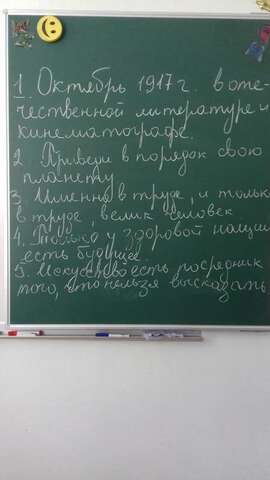 1. Октябрь 1917 г. в оте-
чественной литературе и
кинематографе.
2. Приведи в порядок свою
планету
3. Именно в труде, и только
в труде, велик человек.
4. Только у здоровой нации
есть будущее.
5. Искусство есть посредник
того, что нельзя высказать